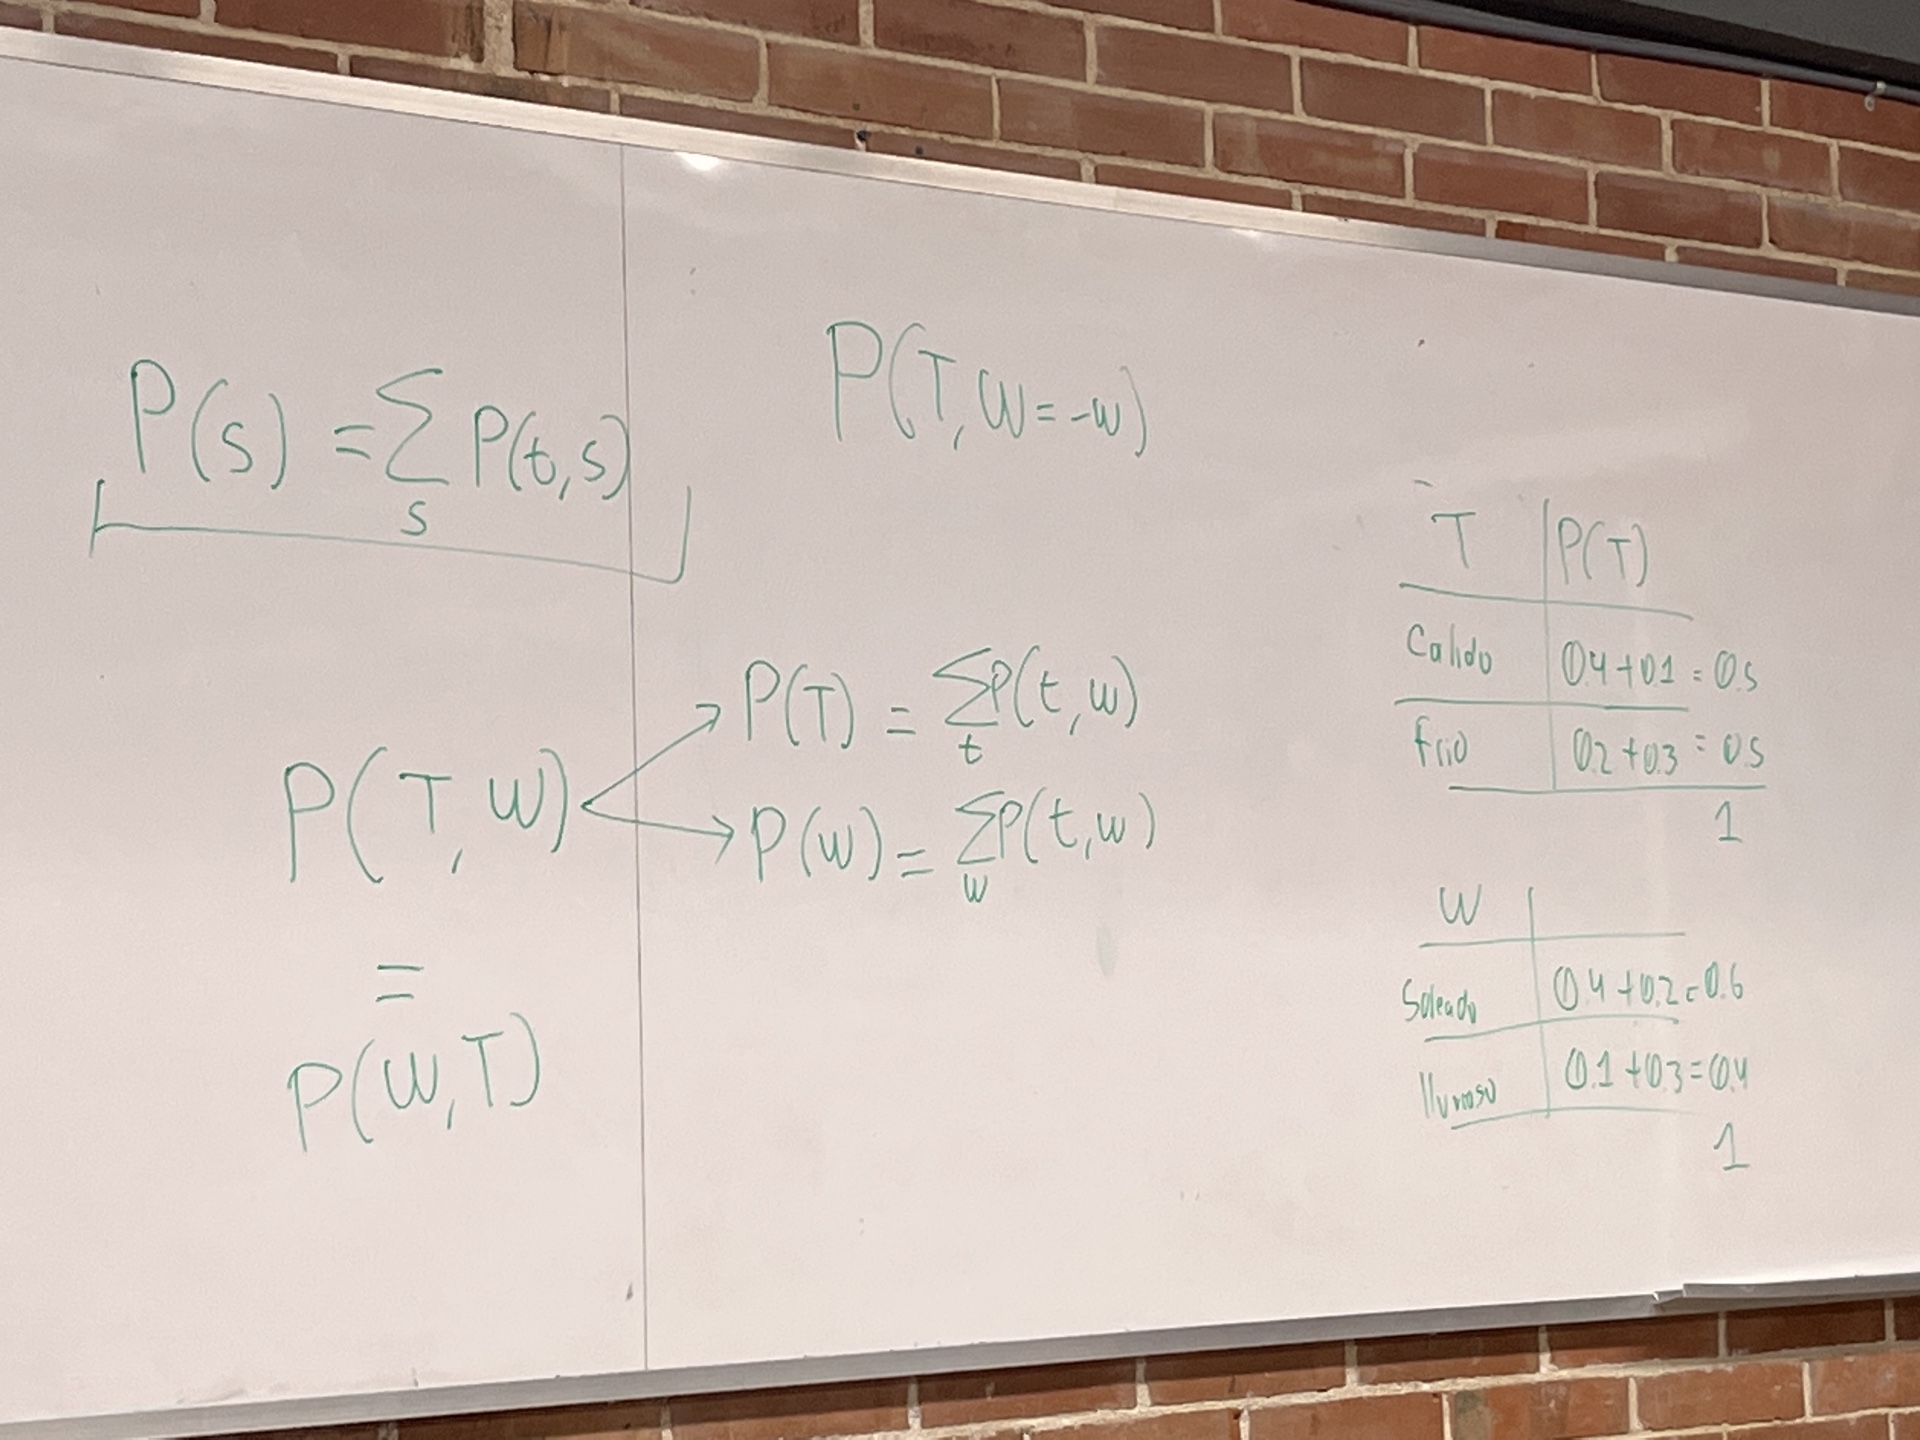 P(s) = Σ_s P(t,s)
P(T,W=-w)
P(T,W)
P(T) = Σ_t P(t,w)
P(w) = Σ_w P(t,w)
=
P(W,T)
T | P(T)
Calido | 0.4+0.1 = 0.5
Frio | 0.2+0.3 = 0.5
1
W
Soleado | 0.4+0.2=0.6
lluvioso | 0.1+0.3=0.4
1